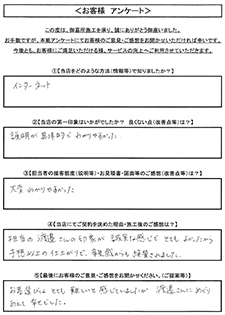 ＜お客様 アンケート＞
この度は、御墓所施工を承り、誠にありがとう御座いました。
お手数ですが、本紙アンケートにてお客様のご意見・ご感想をお聞かせいただければ幸いです。
今後とも、お客様にご満足いただける様、サービスの向上へご利用させていただきます。
①【当店をどのような方法（情報等）で知りましたか？】
インターネット
②【当店の第一印象はいかがでしたか？ 良くない点（改善点等）は？】
説明が具体的でわかりやすかった
③【担当者の接客態度（説明等）・お見積書・図面等のご感想（改善点等）は？】
大変わかりやすかった
④【当店にてご契約を決めた理由・施工後のご感想は？】
担当の渡邉さんの印象が誠実な感じでとてもよかったから
予想以上の仕上がりで、親戚からも絶賛されました。
⑤【最後にお客様のご意見・ご感想をお聞かせください。（ご提案等）】
お墓選びはとても難しいと感じていましたが 渡邉さんにめぐり
あえて幸せでした。